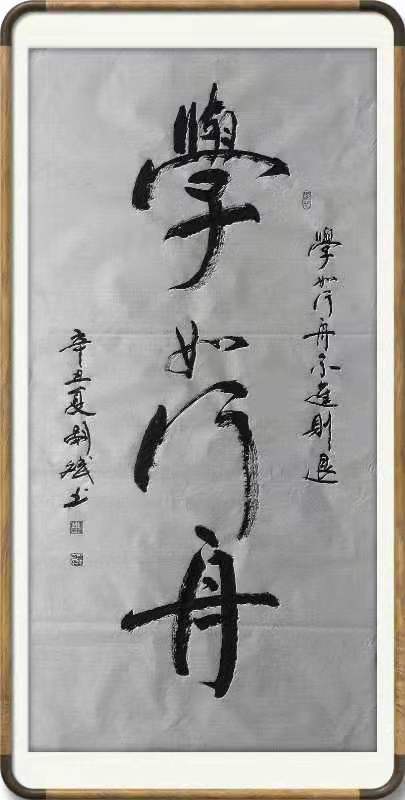 學如行舟不進則退
學如行舟
辛丑夏劉斌书